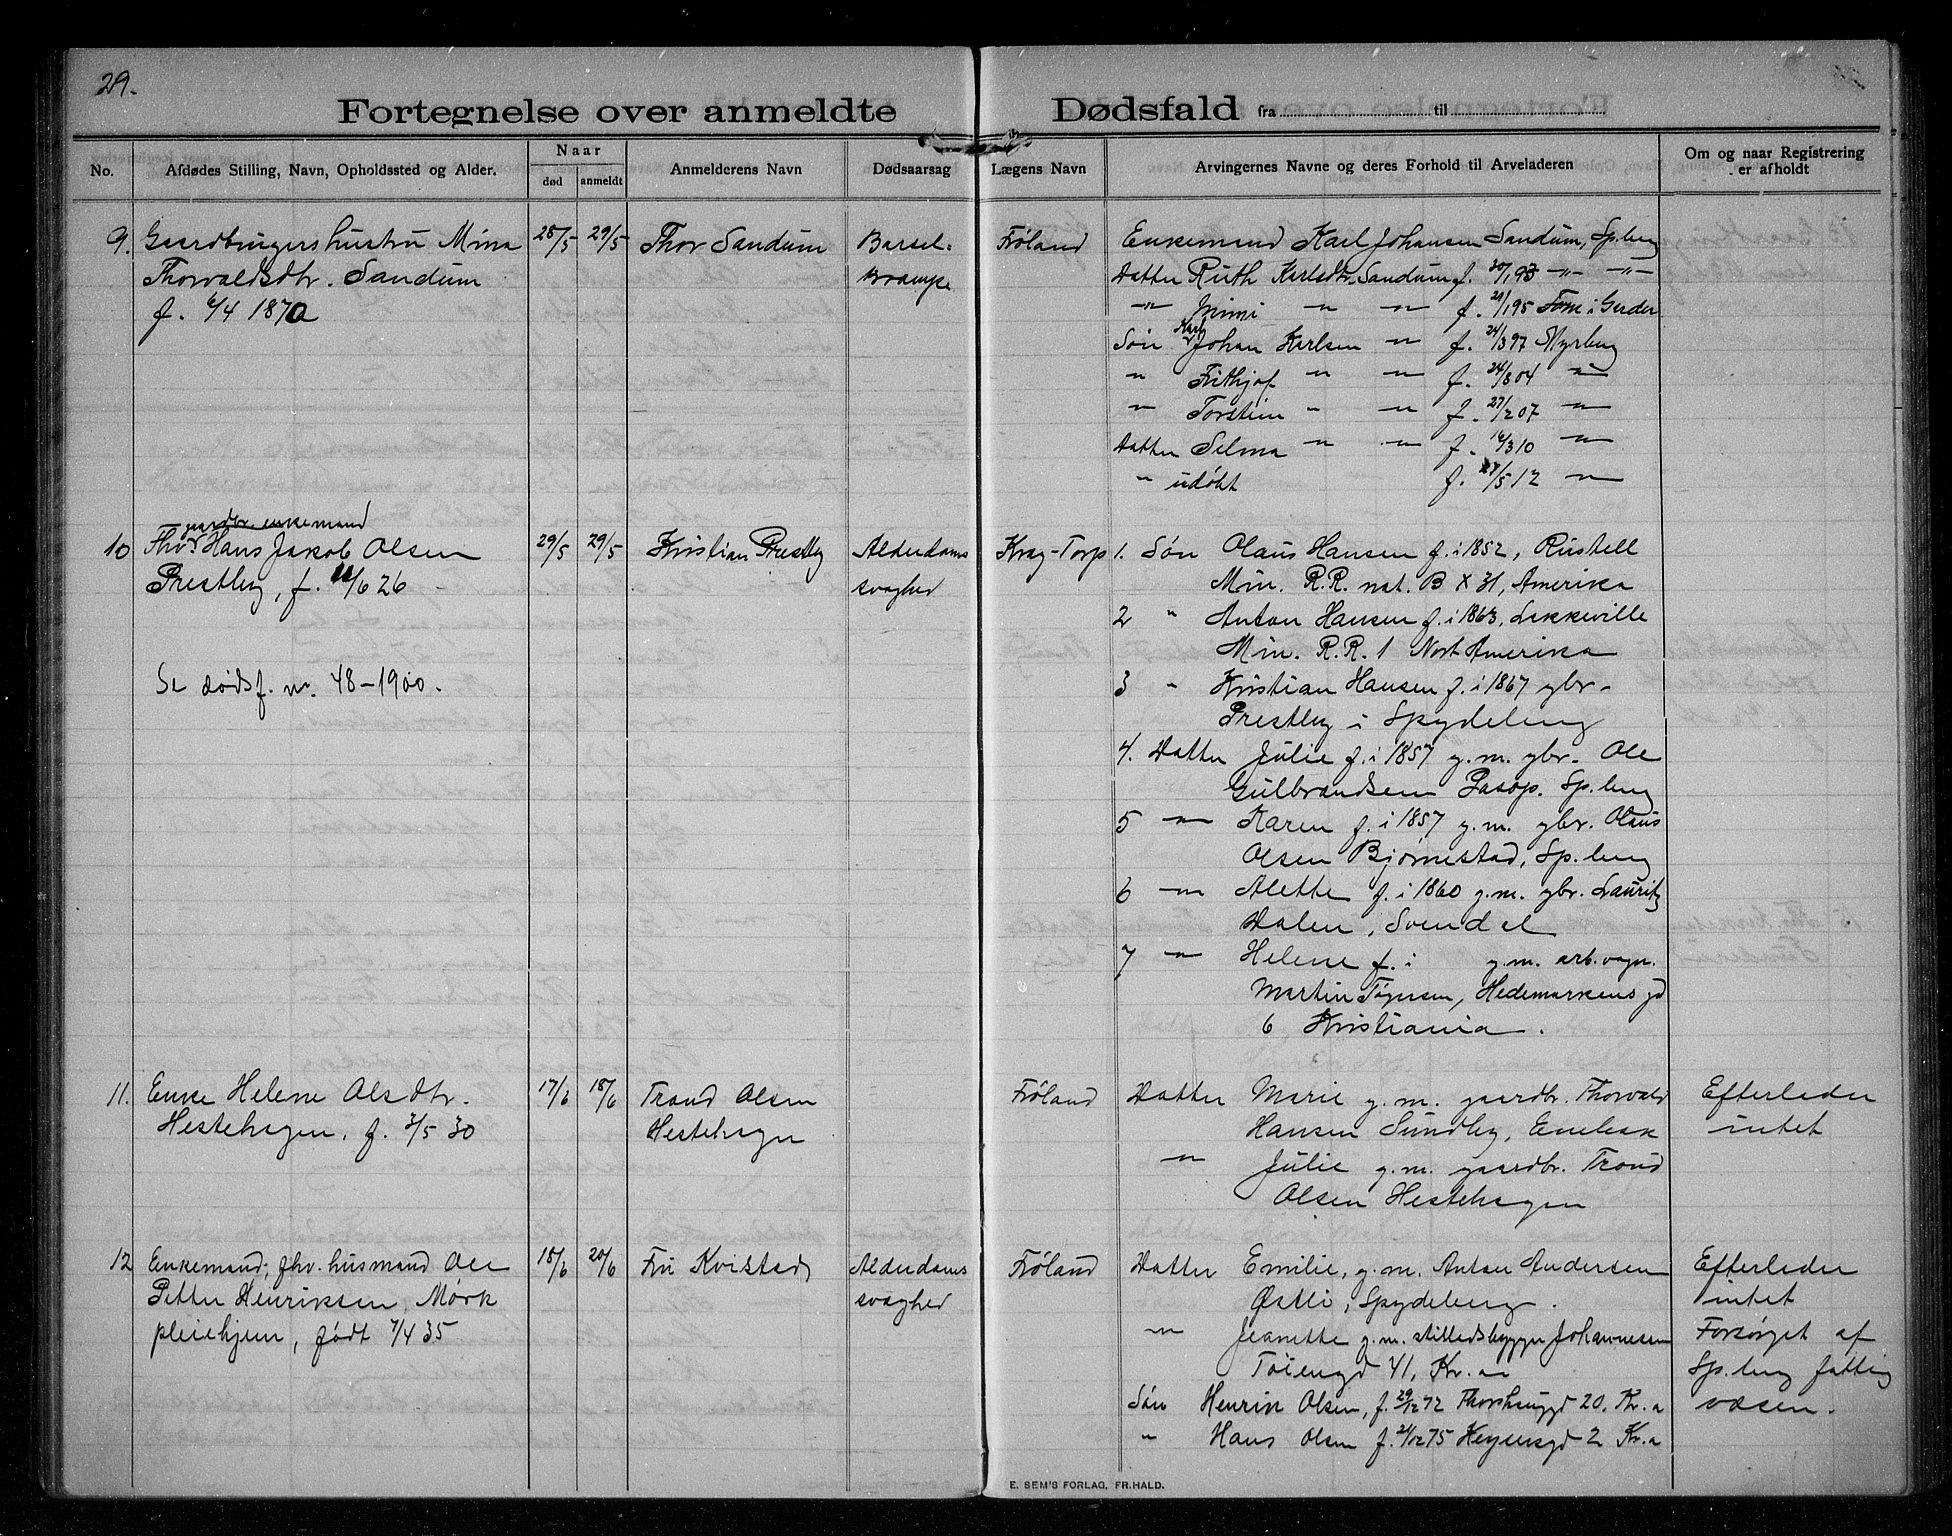 29.
Fortegnelse over anmeldte Dødsfald fra til
No. Afdødes Stilling, Navn, Opholdssted og Alder. Naar død anmeldt Anmelderens Navn Dødsaarsag Lægens Navn Arvingernes Navne og deres Forhold til Arveladeren Om og naar Registrering er afholdt
9. Gaardbrugershustru Mina 28/5 29/5 Thor Sandum Barsel- Frøland Enkemand Karl Johansen Sandum, Sp.berg
Thorvaldsdtr. Sandum krampe Datter Ruth Karlsdtr. Sandum f. 20/1 93 -"- -"-
f. 6/4 1870 -"- Mimi " -"- f. 29/1 95 i Gerder
Søn Karl Johan Karlsen -"- f. 24/3 97 Myrberg
" Frithjof " -"- f. 24/8 04 -"-
" Torstein " -"- f. 27/2 07 -"-
Datter Selma -"- -"- f. 16/3 10 -"-
" udøbt f. 27/5 12 -"-
gaardbr. enkemand
10 Hans Jakob Olsen 29/5 29/5 Kristian Prestby Alderdoms Krag-Torp 1. Søn Olaus Hansen f. i 1852, Rustell
Prestby, f. 11/6 26 svaghed Min. R.R. nat. B X 31, Amerika
2 " Anton Hansen f. i 1863, Lakkeville
Min. R.R. 1 Nort Amerika
Se dødsf. nr. 48-1900. 3 " Kristian Hansen f. i 1867 gbr.
Prestby i Spydeberg
4. Datter Julie f. i 1857 g.m. gbr. Ole
Gulbrandsen Sp.berg
5 -"- Karen f. i 1857 g.m. gbr. Olaus
Olsen Bjørnestad, Sp.berg
6 -"- Alette f. i 1860 g.m. gbr. Lauritz
Dalen, Svendal
7 -"- Helene f. i g.m. arb.vogn.
Martin Tøgersen, Hedemarkens gd
6, Kristiania.
11. Enke Helene Olsdtr. 17/6 18/6 Trond Olsen Frøland Datter Marie g.m. gaardbr. Thorvald Efterlader
Hestehagen, f. 3/5 30 Hestehagen Hansen Sundby, Enebak intet
-"- Julie g.m. gaardbr. Trond
Olsen Hestehagen
12 Enkemand, fhv. husmand Ole 18/6 20/6 Fru Kvistad Alderdoms Frøland Datter Emilie, g.m. Anton Andersen Efterlader
Petter Henriksen, Mørk svaghed Østli, Spydeberg. intet
pleiehjem, født 7/4 35 -"- Jeanette g.m. stilledsbygger Johannesen Forsørget af
Tøiengd 41, Kr.a Sp.berg fattig
Søn Henrik Olsen, f. 29/12 72 Thorshauggd 20. Kr.a væsen.
" Hans Olsen f. 21/12 75 Heyensgd 2 Kr.a
E. SEM'S FORLAG, FR.HALD.